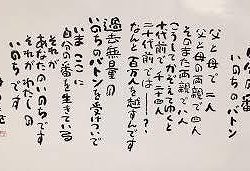 自分の番
いのちのバトン
父と母で二人
父と母の両親で四人
そのまた両親で八人
こうしてかぞえてゆくと
十代前で千二十四人
二十代前では──？
なんと百万人を越すんです
過去無量の
いのちのバトンを受けついで
いまここに
自分の番を生きている
それが
あなたのいのちです
それがわたしの
いのちです